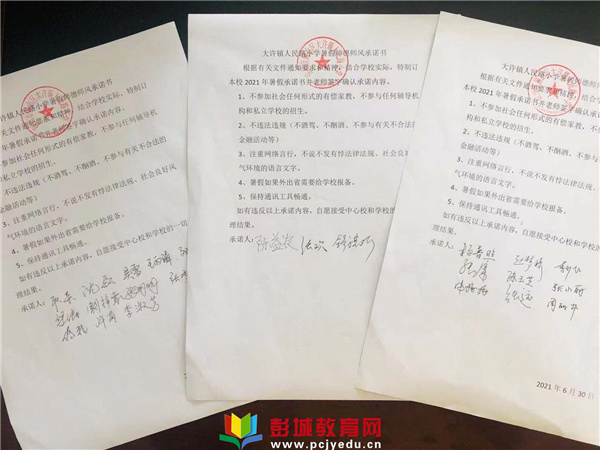 许镇人民路小学暑假师德师风承诺书
关文件通知要求和精神，结合学校实际，特制订
年暑假承诺书并老师签字确认承诺内容。
参加社会任何形式的有偿家教、不参与任何辅导机
和私立学校的招生。
不违法违规（不酒驾、不酗酒、不参与有关不合法的
金融活动等）
3、注重网络言行，不说不发有悖法律法规、社会良好风
气环境的语言文字。
4、暑假如果外出省需要给学校报备。
5、保持通讯工具畅通。
如有违反以上承诺内容，自愿接受中心校和学校的一切
理结果。
承诺人：
大许镇人民路小学暑假师德师风承诺书
根据有关文件通知要求和精神，结合学校实际，特制订
本校 2021 年暑假承诺书并老师签字确认承诺内容。
1、不参加社会任何形式的有偿家教、不参与任何辅导机
构和私立学校的招生。
2、不违法违规（不酒驾、不酗酒、不参与有关不合法
金融活动等）
3、注重网络言行，不说不发有悖法律法规、社会良好
气环境的语言文字。
4、暑假如果外出省需要给学校报备。
5、保持通讯工具畅通。
如有违反以上承诺内容，自愿接受中心校和学校的
理结果。
承诺人：
大许镇人民路小学暑假师德师风承诺书
根据有关文件通知要求和精神，结合学校实际，特
本校 2021 年暑假承诺书并老师签字确认承诺内容。
1、不参加社会任何形式的有偿家教、不参与任何
构和私立学校的招生。
2、不违法违规（不酒驾、不酗酒、不参与有关
金融活动等）
3、注重网络言行，不说不发有悖法律法规、
气环境的语言文字。
4、暑假如果外出省需要给学校报备。
5、保持通讯工具畅通。
如有违反以上承诺内容，自愿接受中心校和
理结果。
承诺人：
2021 年 6 月 30 日
彭城教育网
www.pcjyedu.cn